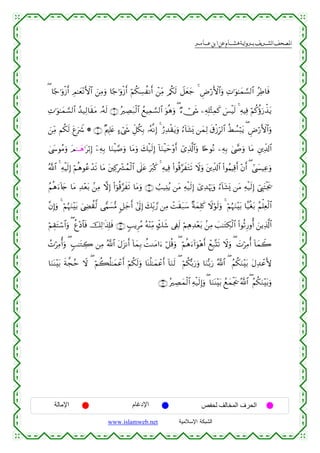 المصحف الشريف برواية هشام عن ابن عامر
فَاطِرُ ٱلسَّمَٰوَٰتِ وَٱلْأَرْضِ ۚ جَعَلَ لَكُم مِّنْ أَنفُسِكُمْ أَزْوَٰجًا وَمِنَ ٱلْأَنْعَٰمِ أَزْوَٰجًا ۖ
يَذْرَؤُكُمْ فِيهِ ۚ لَيْسَ كَمِثْلِهِۦ شَىْءٌ ۖ وَهُوَ ٱلسَّمِيعُ ٱلْبَصِيرُ لَهُۥ مَقَالِيدُ ٱلسَّمَٰوَٰتِ
وَٱلْأَرْضِ ۖ يَبْسُطُ ٱلرِّزْقَ لِمَن يَشَآءُ وَيَقْدِرُ ۚ إِنَّهُۥ بِكُلِّ شَىْءٍ عَلِيمٌ ۞ شَرَعَ لَكُم مِّنَ
ٱلدِّينِ مَا وَصَّىٰ بِهِۦ نُوحًا وَٱلَّذِىٓ أَوْحَيْنَآ إِلَيْكَ وَمَا وَصَّيْنَا بِهِۦٓ إِبْرَٰهَٰمَ وَمُوسَىٰ
وَعِيسَىٰٓ ۖ أَنْ أَقِيمُوا۟ ٱلدِّينَ وَلَا تَتَفَرَّقُوا۟ فِيهِ ۚ كَبُرَ عَلَى ٱلْمُشْرِكِينَ مَا تَدْعُوهُمْ إِلَيْهِ ۚ ٱللَّهُ
يَجْتَبِىٓ إِلَيْهِ مَن يَشَآءُ وَيَهْدِىٓ إِلَيْهِ مَن يُنِيبُ وَمَا تَفَرَّقُوٓا۟ إِلَّا مِنۢ بَعْدِ مَا جَآءَهُمُ
ٱلْعِلْمُ بَغْيًۢا بَيْنَهُمْ ۚ وَلَوْلَا كَلِمَةٌ سَبَقَتْ مِن رَّبِّكَ إِلَىٰٓ أَجَلٍ مُّسَمًّى لَّقُضِىَ بَيْنَهُمْ ۚ وَإِنَّ
ٱلَّذِينَ أُورِثُوا۟ ٱلْكِتَٰبَ مِنۢ بَعْدِهِمْ لَفِى شَكٍّ مِّنْهُ مُرِيبٍ فَلِذَٰلِكَ فَٱدْعُ ۖ وَٱسْتَقِمْ
كَمَآ أُمِرْتَ ۖ وَلَا تَتَّبِعْ أَهْوَآءَهُمْ ۖ وَقُلْ ءَامَنتُ بِمَآ أَنزَلَ ٱللَّهُ مِن كِتَٰبٍ ۖ وَأُمِرْتُ
لِأَعْدِلَ بَيْنَكُمُ ۖ ٱللَّهُ رَبُّنَا وَرَبُّكُمْ ۖ لَنَآ أَعْمَٰلُنَا وَلَكُمْ أَعْمَٰلُكُمْ ۖ لَا حُجَّةَ بَيْنَنَا
وَبَيْنَكُمُ ۖ ٱللَّهُ يَجْمَعُ بَيْنَنَا ۖ وَإِلَيْهِ ٱلْمَصِيرُ
الحرف المخالف لحفص الإدغام الإمالة
الشبكة الإسلامية www.islamweb.net